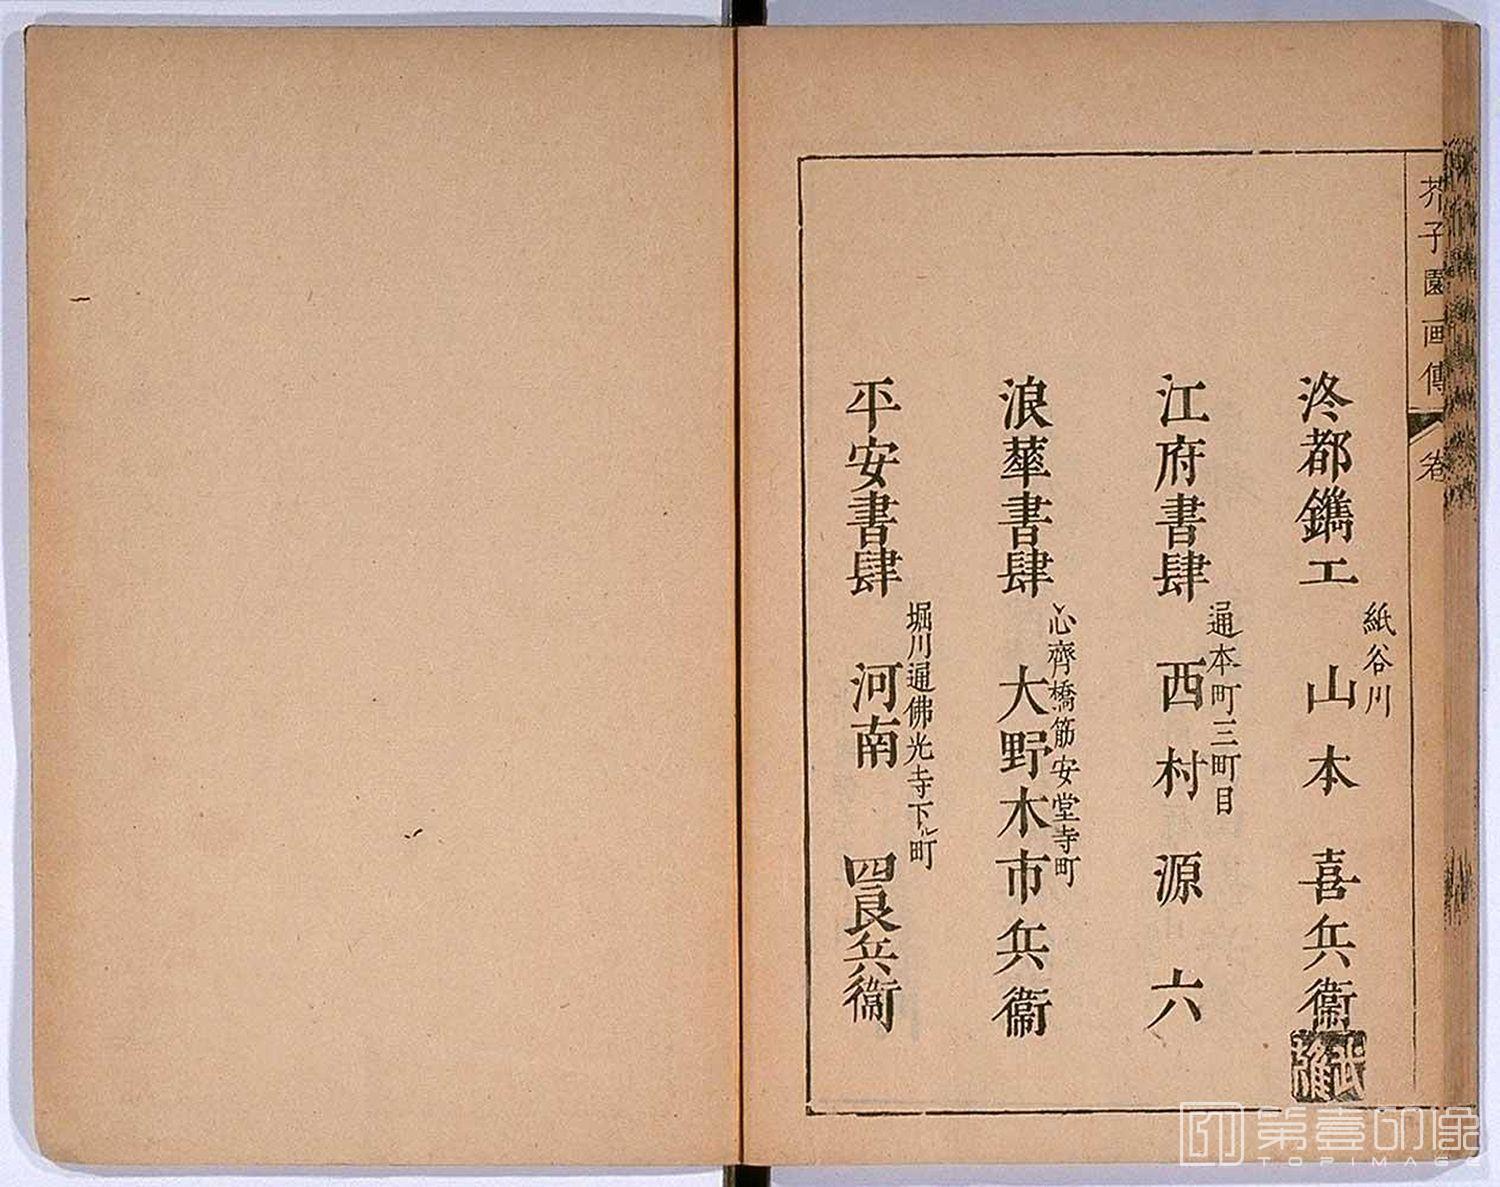 芥子園画傳
卷
洛都鐫工
紙谷川
山本喜兵衞
江府書肆
通本町三町目
西村源六
浪華書肆
心齊橋筋安堂寺町
大野木市兵衞
平安書肆
堀川通佛光寺下ル町
河南四良兵衞
第壹印像
TOPIMAGE